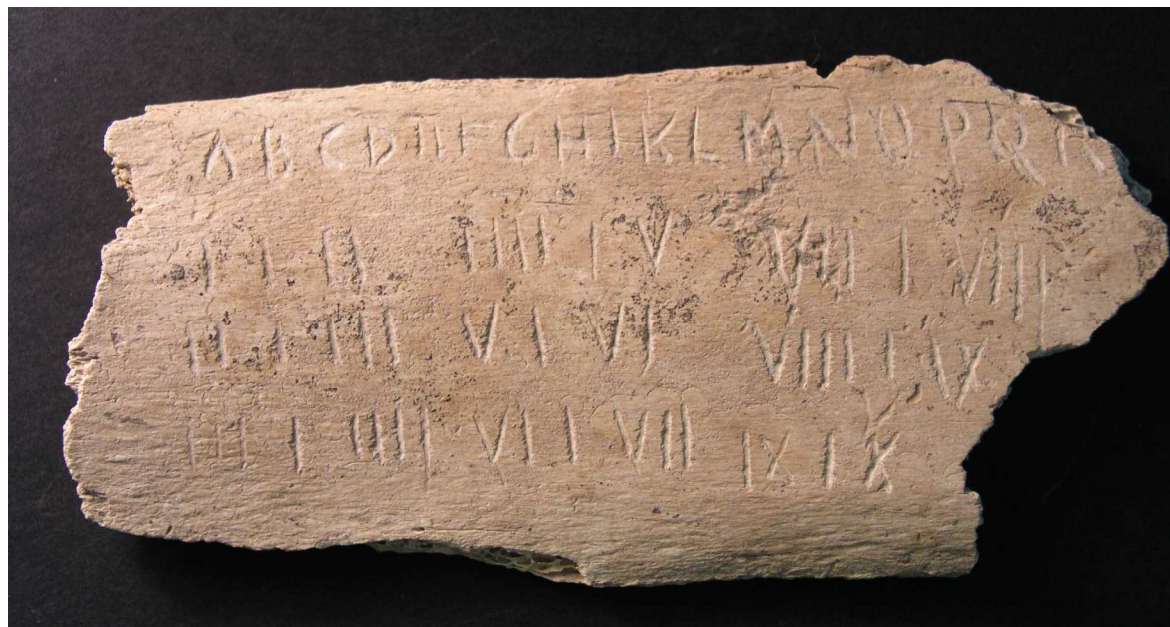 A B C D II F G H I K L M N O P Q R
I I II IIII I V VII I VIII
II I III V I VI VIII I IX
III I IIII VI I VII IX I X